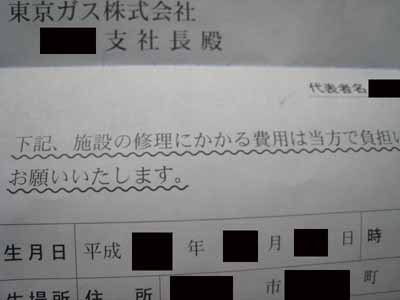 東京ガス株式会社
支社長殿
代表者名
下記、施設の修理にかかる費用は当方で負担い
お願いいたします。
生月日 平成 年 月 日 時
生場所 住 所 市 町